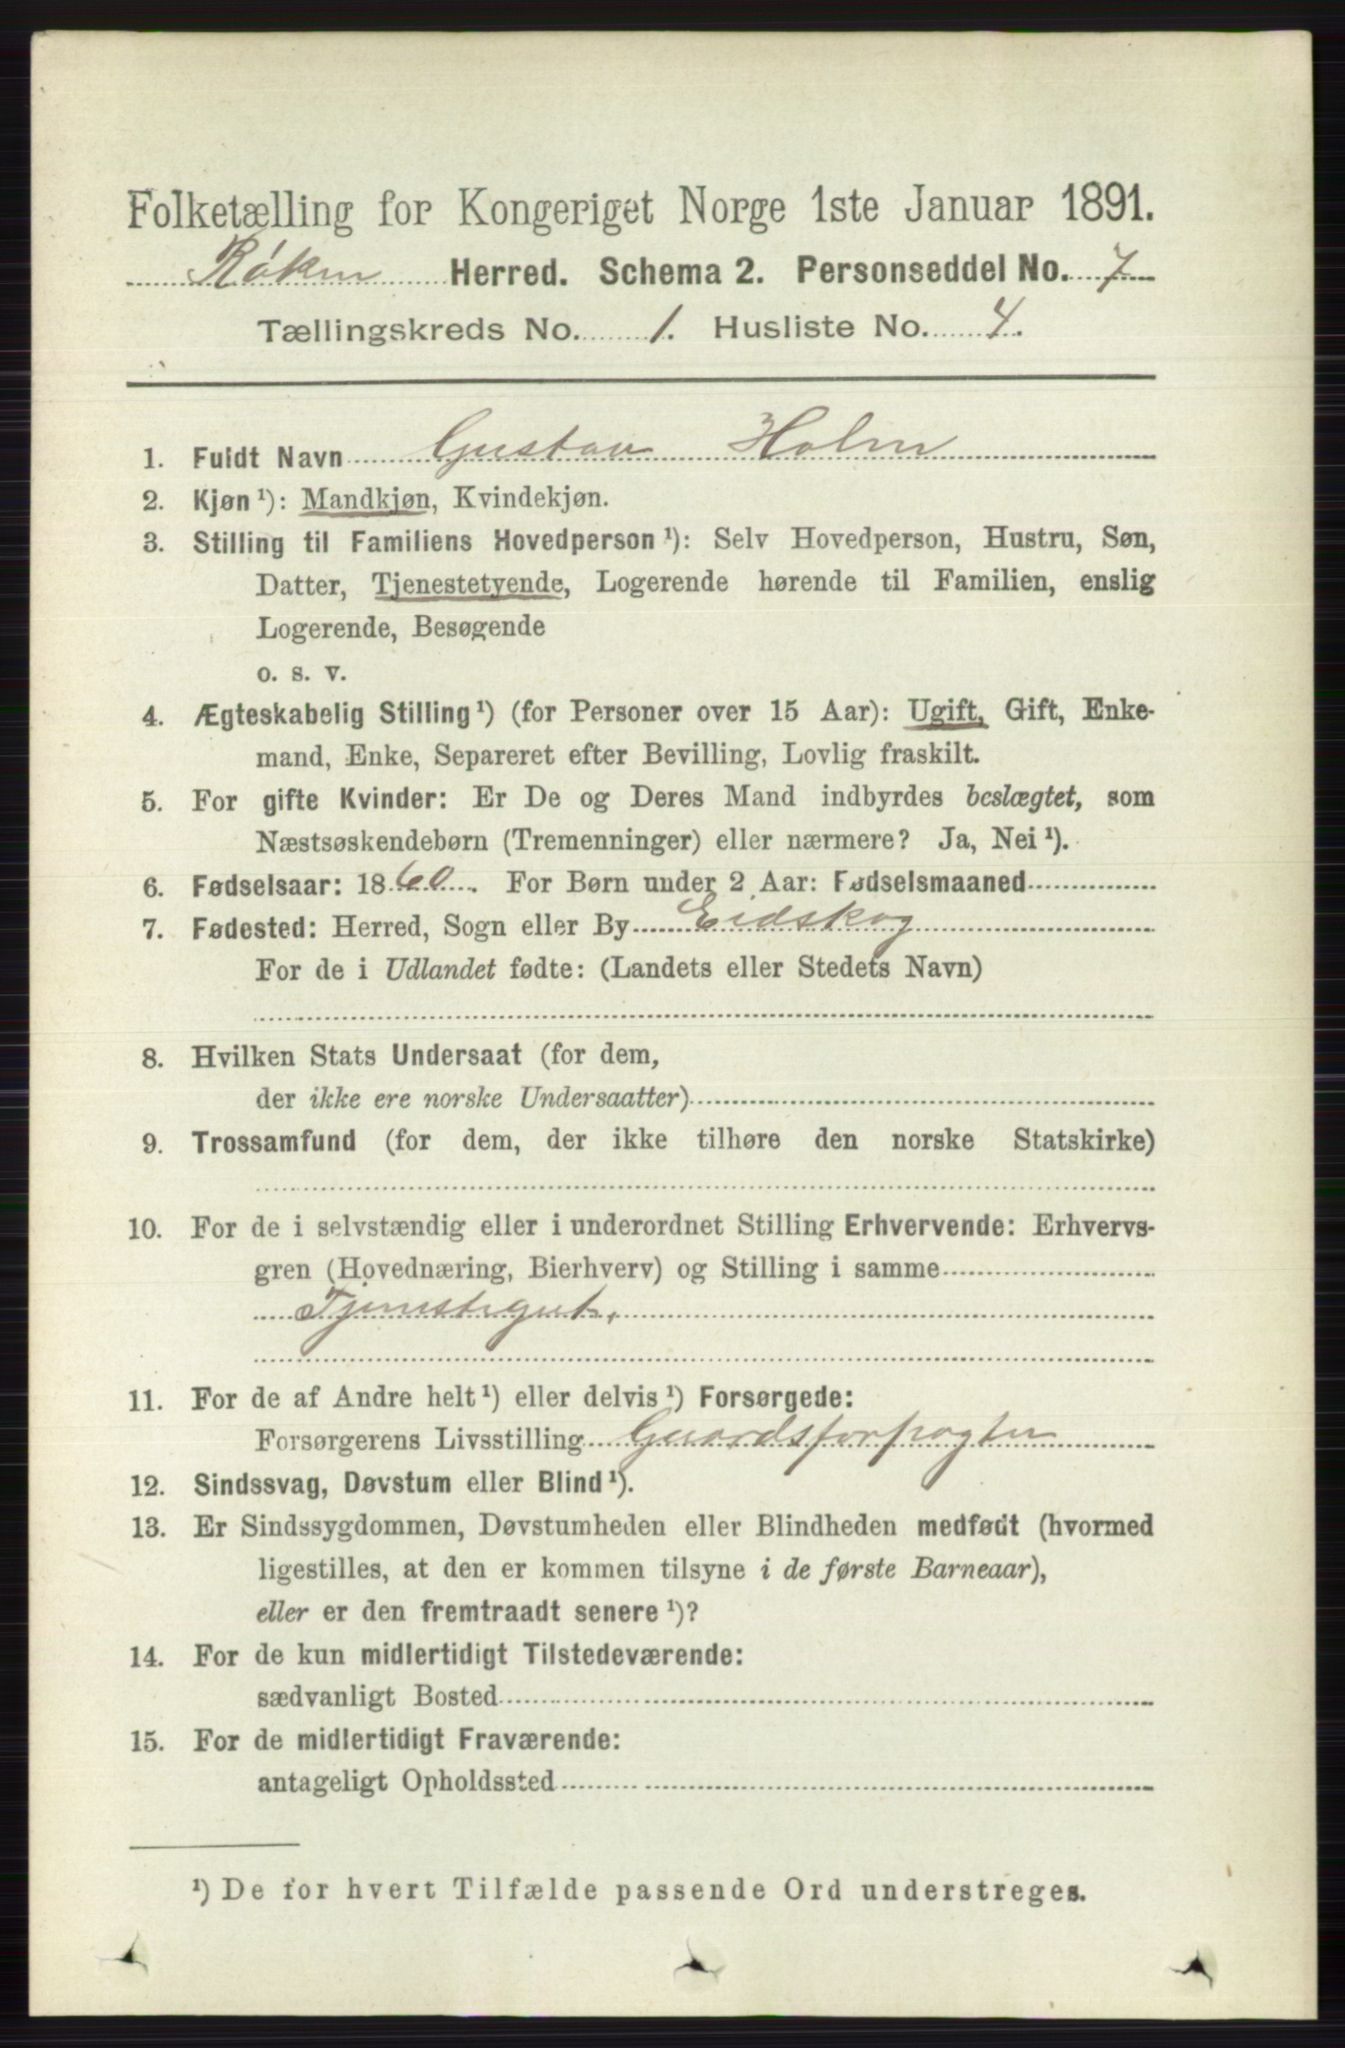 Folketælling for Kongeriget Norge 1ste Januar 1891.
Røken Herred. Schema 2. Personseddel No. 7
Tællingskreds No. 1. Husliste No. 4.
1. Fuldt Navn Gustav Holm
2. Kjøn¹): Mandkjøn, Kvindekjøn.
3. Stilling til Familiens Hovedperson¹): Selv Hovedperson, Hustru, Søn,
Datter, Tjenestetyende, Logerende hørende til Familien, enslig
Logerende, Besøgende
o. s. v.
4. Ægteskabelig Stilling¹) (for Personer over 15 Aar): Ugift, Gift, Enke-
mand, Enke, Separeret efter Bevilling, Lovlig fraskilt.
5. For gifte Kvinder: Er De og Deres Mand indbyrdes beslægtet, som
Næstsøskendebørn (Tremenninger) eller nærmere? Ja, Nei¹).
6. Fødselsaar: 1860. For Børn under 2 Aar: Fødselsmaaned
7. Fødested: Herred, Sogn eller By Eidskog
For de i Udlandet fødte: (Landets eller Stedets Navn)
8. Hvilken Stats Undersaat (for dem,
der ikke ere norske Undersaatter)
9. Trossamfund (for dem, der ikke tilhøre den norske Statskirke)
10. For de i selvstændig eller i underordnet Stilling Erhvervende: Erhvervs-
gren (Hovednæring, Bierhverv) og Stilling i samme
Tjenestegut.
11. For de af Andre helt¹) eller delvis¹) Forsørgede:
Forsørgerens Livsstilling Gaardsforpagter
12. Sindssvag, Døvstum eller Blind¹).
13. Er Sindssygdommen, Døvstumheden eller Blindheden medfødt (hvormed
ligestilles, at den er kommen tilsyne i de første Barneaar),
eller er den fremtraadt senere¹)?
14. For de kun midlertidigt Tilstedeværende:
sædvanligt Bosted
15. For de midlertidigt Fraværende:
antageligt Opholdssted
¹) De for hvert Tilfælde passende Ord understreges.